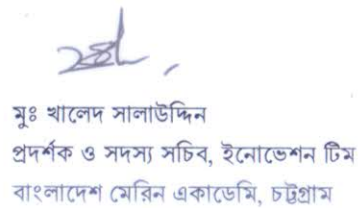 মুঃ খালেদ সালাউদ্দিন
প্রদর্শক ও সদস্য সচিব, ইনোভেশন টিম
বাংলাদেশ মেরিন একাডেমি, চট্টগ্রাম